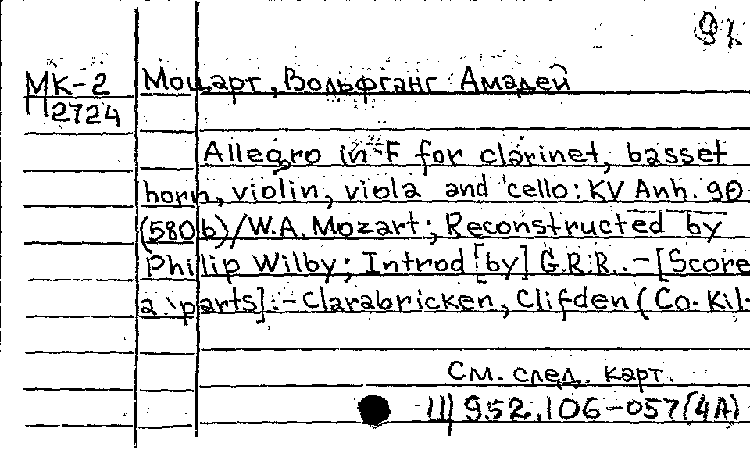 МК-2 Моцарт, Вольфганг Амадей
12724
Allegro in F for clarinet, basset
horn, violin, viola and 'cello: KV Anh. 90
(580b)/W.A. Mozart; Reconstructed by
Philip Wilby; Introd [by] G.R.R. - [Score
a. parts]. - Clarabricken, Clifden (Co. Kil-
См. след. карт.
952.106-057(4А)